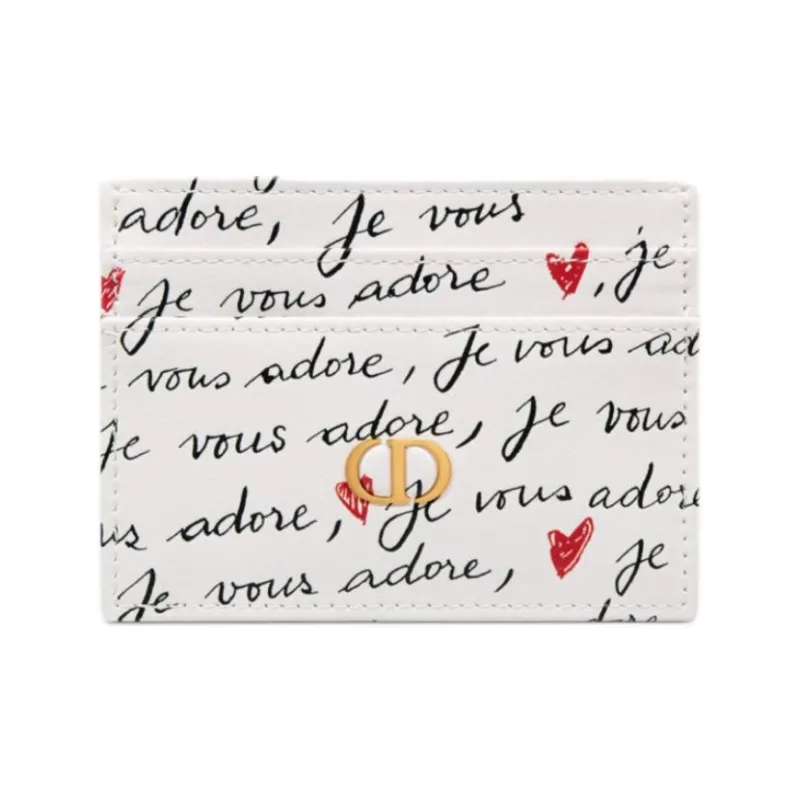 adore, Je vous
Je vous adore , je
vous adore, Je vous ad
Je vous adore, Je vous
us adore, Je vous adore
Je vous adore, je
CD